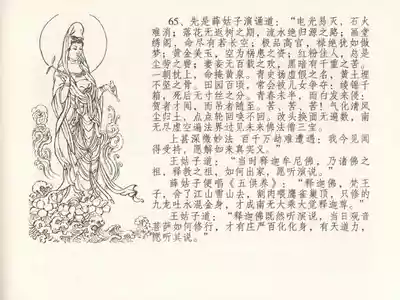 65、先是薛姑子演诵道：“电光易灭，石火
难消；落花无返树之期，流水绝归源之路；画堂
绣阁，命尽有若长空；极品高官，禄绝犹如做
梦；黄金美玉，空为祸患之资；红粉佳人，总是
尘劳之费；妻妾无百载之欢，黑暗有千重之苦。
一朝枕上，命掩黄泉。青史扬虚假之名，黄土埋
不坚之骨。田园百顷，常会被儿女争夺；绫锦千
箱，死后无寸丝之分。青春未半，而白发来侵；
贺者才闻，而吊者随至。苦、苦、苦！气化清风
尘归土，点点轮回唤不回。改头换面无遍数，南
无尽虚空遍法界过见未来佛法僧三宝。
上甚深微妙法 百千万劫难遭遇；我今见闻
得受持，愿解如来真实义。”
王姑子道：“当时释迦牟尼佛，乃诸佛之
祖，释教之祖，如何出家，愿听演说。”
薛姑子便唱《五供养》：“释迦佛，梵王
子，舍了江山雪山去，割肉喂鹰雀巢顶，只修的
九龙吐水混金身，才成南无大乘大觉释迦尊。”
王姑子道：“释迦佛既然听演说，当日观音
菩萨如何修行，才有庄严百化化身，有天道力，
愿听其说。”